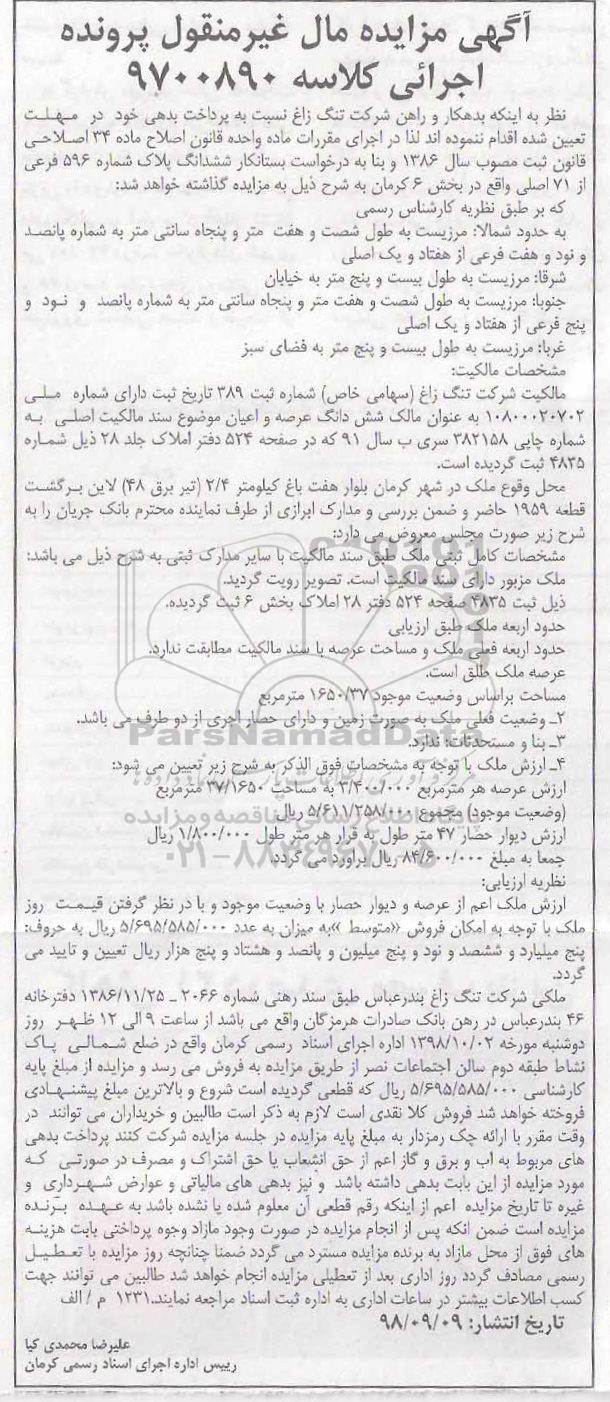 آگهی مزایده مال غیرمنقول پرونده
اجرائی کلاسه ۹۷۰۰۸۹۰
نظر به اینکه بدهکار و راهن شرکت تنگ زاغ نسبت به پرداخت بدهی خود در مهلت
تعیین شده اقدام ننموده اند لذا در اجرای مقررات ماده واحده قانون اصلاح ماده ۳۴ اصلاحی
قانون ثبت مصوب سال ۱۳۸۶ و بنا به درخواست بستانکار ششدانگ پلاک شماره ۵۹۶ فرعی
از ۷۱ اصلی واقع در بخش ۶ کرمان به شرح ذیل به مزایده گذاشته خواهد شد:
که بر طبق نظریه کارشناس رسمی
به حدود شمالا: مرزیست به طول شصت و هفت متر و پنجاه سانتی متر به شماره پانصد
و نود و هفت فرعی از هفتاد و یک اصلی
شرقا: مرزیست به طول بیست و پنج متر به خیابان
جنوبا: مرزیست به طول شصت و هفت متر و پنجاه سانتی متر به شماره پانصد و نود و
پنج فرعی از هفتاد و یک اصلی
غربا: مرزیست به طول بیست و پنج متر به فضای سبز
مشخصات مالکیت:
مالکیت شرکت تنگ زاغ (سهامی خاص) شماره ثبت ۳۸۹ تاریخ ثبت دارای شماره ملی
۱۰۸۰۰۰۲۰۷۰۲ به عنوان مالک شش دانگ عرصه و اعیان موضوع سند مالکیت اصلی به
شماره چاپی ۳۸۲۱۵۸ سری ب سال ۹۱ که در صفحه ۵۲۴ دفتر املاک جلد ۲۸ ذیل شماره
۴۸۳۵ ثبت گردیده است.
محل وقوع ملک در شهر کرمان بلوار هفت باغ کیلومتر ۲/۴ (تیر برق ۴۸) لاین برگشت
قطعه ۱۹۵۹ حاضر و ضمن بررسی و مدارک ابرازی از طرف نماینده محترم بانک جریان را به
شرح زیر صورت مجلس معروض می دارد:
مشخصات کامل ثبتی ملک طبق سند مالکیت با سایر مدارک ثبتی به شرح ذیل می باشد:
ملک مزبور دارای سند مالکیت است. تصویر رویت گردید.
ذیل ثبت ۴۸۳۵ صفحه ۵۲۴ دفتر ۲۸ املاک بخش ۶ ثبت گردیده.
حدود اربعه ملک طبق ارزیابی
حدود اربعه فعلی ملک و مساحت عرصه با سند مالکیت مطابقت ندارد.
عرصه ملک طلق است.
مساحت براساس وضعیت موجود ۱۶۵۰/۳۷ مترمربع
۲ـ وضعیت فعلی ملک به صورت زمین و دارای حصار آجری از دو طرف می باشد.
ParsNamadData
۳ـ بنا و مستحدثات: ندارد.
۴ـ ارزش ملک با توجه به مشخصات فوق الذکر به شرح زیر تعیین می شود:
ارزش عرصه هر مترمربع ۳/۴۰۰/۰۰۰ به مساحت ۳۷/۱۶۵۰ مترمربع
(وضعیت موجود) مجموع ۵/۶۱۱/۲۵۸/۰۰۰ ریال
ارزش دیوار حصار ۴۷ متر طول به قرار هر متر طول ۱/۸۰۰/۰۰۰ ریال
جمعا به مبلغ ۸۴/۶۰۰/۰۰۰ ریال براورد می گردد.
۰۲۱-۸۸۳۴۹۶۷۰-۵
نظریه ارزیابی:
ارزش ملک اعم از عرصه و دیوار حصار با وضعیت موجود و با در نظر گرفتن قیمت روز
ملک با توجه به امکان فروش «متوسط» به میزان به عدد ۵/۶۹۵/۵۸۵/۰۰۰ ریال به حروف:
پنج میلیارد و ششصد و نود و پنج میلیون و پانصد و هشتاد و پنج هزار ریال تعیین و تایید می
گردد.
ملکی شرکت تنگ زاغ بندرعباس طبق سند رهنی شماره ۲۰۶۶ ـ ۱۳۸۶/۱۱/۲۵ دفترخانه
۴۶ بندرعباس در رهن بانک صادرات هرمزگان واقع می باشد از ساعت ۹ الی ۱۲ ظهر روز
دوشنبه مورخه ۱۳۹۸/۱۰/۰۲ اداره اجرای اسناد رسمی کرمان واقع در ضلع شمالی پاک
نشاط طبقه دوم سالن اجتماعات نصر از طریق مزایده به فروش می رسد و مزایده از مبلغ پایه
کارشناسی ۵/۶۹۵/۵۸۵/۰۰۰ ریال که قطعی گردیده است شروع و بالاترین مبلغ پیشنهادی
فروخته خواهد شد فروش کلا نقدی است لازم به ذکر است طالبین و خریداران می توانند در
وقت مقرر با ارائه چک رمزدار به مبلغ پایه مزایده در جلسه مزایده شرکت کنند پرداخت بدهی
های مربوط به اب و برق و گاز اعم از حق انشعاب یا حق اشتراک و مصرف در صورتی که
مورد مزایده از این بابت بدهی داشته باشد و نیز بدهی های مالیاتی و عوارض شهرداری و
غیره تا تاریخ مزایده اعم از اینکه رقم قطعی آن معلوم شده یا نشده باشد به عهده برنده
مزایده است ضمن انکه پس از انجام مزایده در صورت وجود مازاد وجوه پرداختی بابت هزینه
های فوق از محل مازاد به برنده مزایده مسترد می گردد ضمنا چنانچه روز مزایده با تعطیل
رسمی مصادف گردد روز اداری بعد از تعطیلی مزایده انجام خواهد شد طالبین می توانند جهت
کسب اطلاعات بیشتر در ساعات اداری به اداره ثبت اسناد مراجعه نمایند.۱۲۳۱ م / الف
تاریخ انتشار: ۹۸/۰۹/۰۹
علیرضا محمدی کیا
رییس اداره اجرای اسناد رسمی کرمان